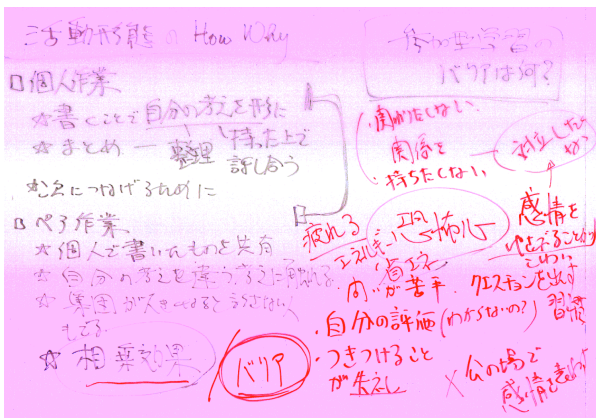 活動形態の How Why
個人作業
☆ 書くことで自分の考えを形に
☆ まとめ ― 整理
持った上で
話し合う
につなげるために
ペア作業
☆ 個人で書いたものを共有
☆ 自分の考えと違う考えに触れる
☆ 集団が大きすぎると話さない人
もでる
☆ 相乗効果
参加型学習の
バリアは何?
・関わりたくない
関係を
・持ちたくない
対立したくない
疲れる
エネルギー
省エネ
恐怖心
感情を
ゆでることが
こわい
問いが苦手
・クエスチョンを出す
習慣
・自分の評価(わからないの?)
・つきつけること
が失礼
バリア
× 公の場で
感情を